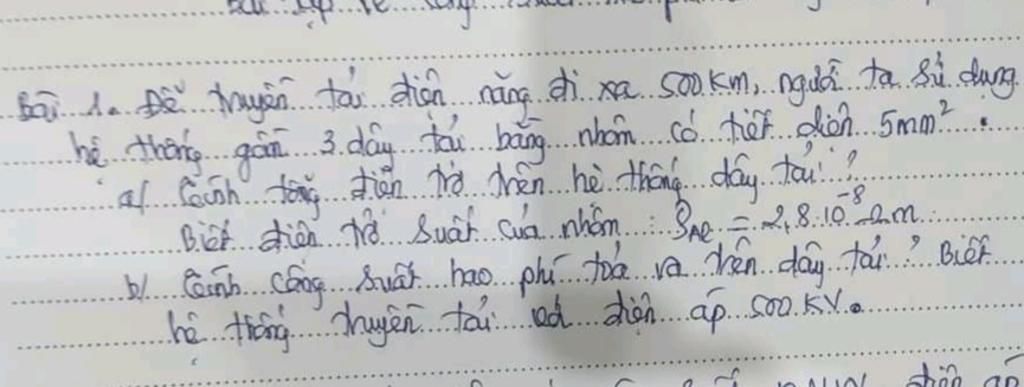 Bài 1. Để truyền tải điện năng đi xa 500 Km, người ta sử dụng
hệ thống gồm 3 dây tải bằng nhôm có tiết diện 5mm².
a/ Tính tổng điện trở trên hệ thống dây tải?
Biết điện trở suất của nhôm: ρAl = 2,8.10⁻⁸ Ωm.
b/ Tính công suất hao phí toả ra trên dây tải? Biết
hệ thống truyền tải có điện áp 500 KV.